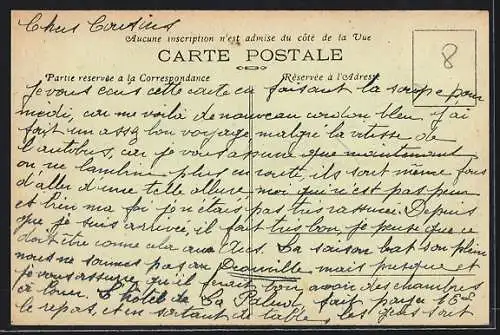 Chers Cousins
Aucune inscription n'est admise du côté de la Vue
CARTE POSTALE
Partie réservée à la Correspondance
Réservée à l'Adresse
8
Je vous écris cette carte en faisant la soupe pour
midi, car me voilà de nouveau cordon bleu, j'ai
fait un assez bon voyage malgré la vitesse de
l'autobus, car je vous assure que maintenant
on ne lambine plus en route, ils sont même fous
d'aller d'une telle allure moi qui n'est pas peur
et bien ma foi je n'étais pas très rassurée. Depuis
que je suis arrivée, il fait très bon je pense que ce
doit être comme cela aux
La saison bat son plein
nous ne sommes pas au Deauville mais presque et
je vous assure qu'il ferait bon avoir des chambres
à louer. L'hôtel de la fait payer 15
le repas, et en sortant de table, les gens sont